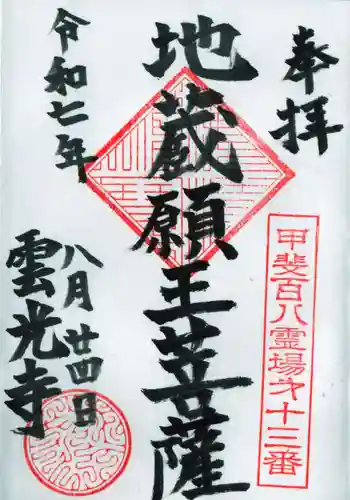 奉拝
甲斐百八霊場第十三番
地蔵願王菩薩
令和七年
八月廿四日
雲光寺